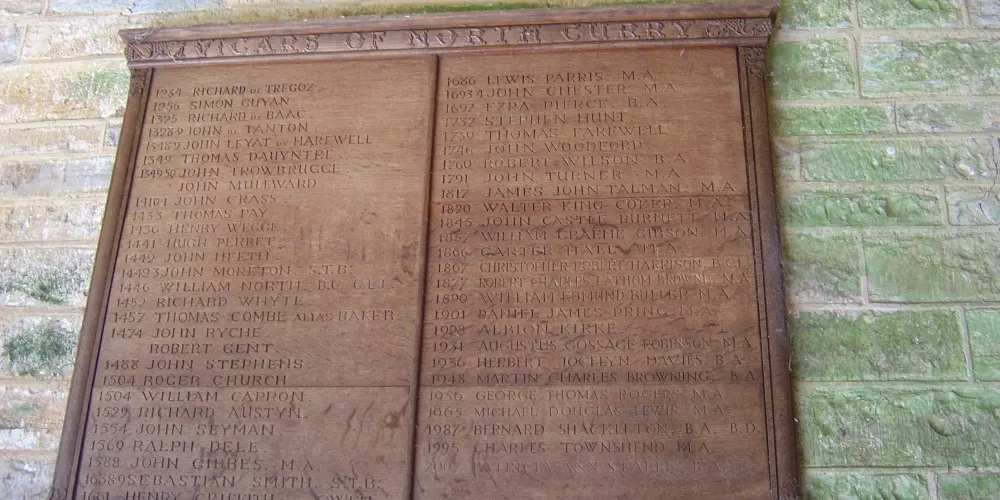 VICARS OF NORTH CURRY
1234 RICHARD DE TREGOZ.
1256 SIMON GUYAN
1325 RICHARD DE BAAC
1328.9 JOHN DE TANTON
1348.9 JOHN LEYAT DE HAREWELL
1349 THOMAS DAUYNTRE
1349.50 JOHN TROWBRUGGE
JOHN MULEWARD
JOHN CRASS
1433 THOMAS PAY
1436 HENRY WEGGE
1441 HUGH PERRET
1442 JOHN HEETH
1442.3 JOHN MORETON S.T.B.
1446 WILLIAM NORTH, B.C.
1452 RICHARD WHYTE
1457 THOMAS COMBE ALIAS BAKER.
1474 JOHN RYCHE
ROBERT GENT.
1488 JOHN STEPHENS
1504 ROGER CHURCH
1504 WILLIAM CAPRON.
1529 RICHARD AUSTYN.
1554 JOHN SEYMAN
1569 RALPH DELE
1588 JOHN GIBBES, M.A.
1638.9 SEBASTIAN SMITH, S.T.B.
1661 HENRY GRIFFITH
1686 LEWIS PARRIS, M.A.
1693.4 JOHN CHESTER, M.A.
1697 EZRA PIERCE, B.A.
1732 STEPHEN HUNT
1739 THOMAS FAREWELL
1746 JOHN WOODFORD
1760 ROBERT WILSON, B.A.
1791 JOHN TURNER, M.A.
1817 JAMES JOHN TALMAN, M.A.
WALTER KING COKER, M.A.
1845 JOHN CASTEL BURNETT, M.A.
1857 WILLIAM GRAEME GIBSON, M.A.
1866 CARTER HALL, M.A.
1867 CHRISTOPHER ROBERT HARRISON, B.C.L.
1877 ROBERT CHARLES LATHOM BROWNE, M.A.
1890 WILLIAM EDMUND BULLER, M.A.
1901 DANIEL JAMES PRING, M.A.
1928 ALBION KIRKE
1931 AUGUSTUS GOSSAGE ROBINSON, M.A.
1936 HERBERT JOCELYN DAVIES, B.A.
1948 MARTIN CHARLES BROWNING, B.A.
1956 GEORGE THOMAS ROGERS, M.A.
1965 MICHAEL DOUGLAS LEWIS, M.A.
1987 BERNARD SHACKLETON, B.A. B.D.
1995 CHARLES TOWNSHEND M.A.
PATRICIA ANN